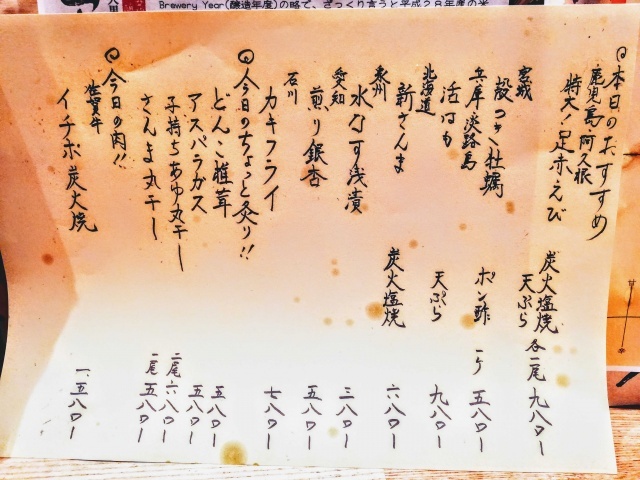 Brewery Year(醸造年度)の略で、ざっくり言うと平成28年度の米
本日のおすすめ
鹿児島・阿久根
特大!足赤えび 炭火塩焼 天ぷら 各一尾 九八〇ー
宮城
殻つき牡蠣 ポン酢 一ケ 五八〇ー
兵庫 淡路島
活はも 天ぷら 九八〇ー
北海道
新さんま 炭火塩焼 六八〇ー
泉州
水なす浅漬 三八〇ー
愛知
煎り銀杏 五八〇ー
石川
カキフライ 七八〇ー
今日のちょっと炙り!!
どんこ椎茸 五八〇ー
アスパラガス 五八〇ー
子持ちあゆ丸干し 二尾 六八〇ー
さんま丸干し 一尾 五八〇ー
今日の肉!!
佐賀牛
イチボ炭火焼 一、五八〇ー